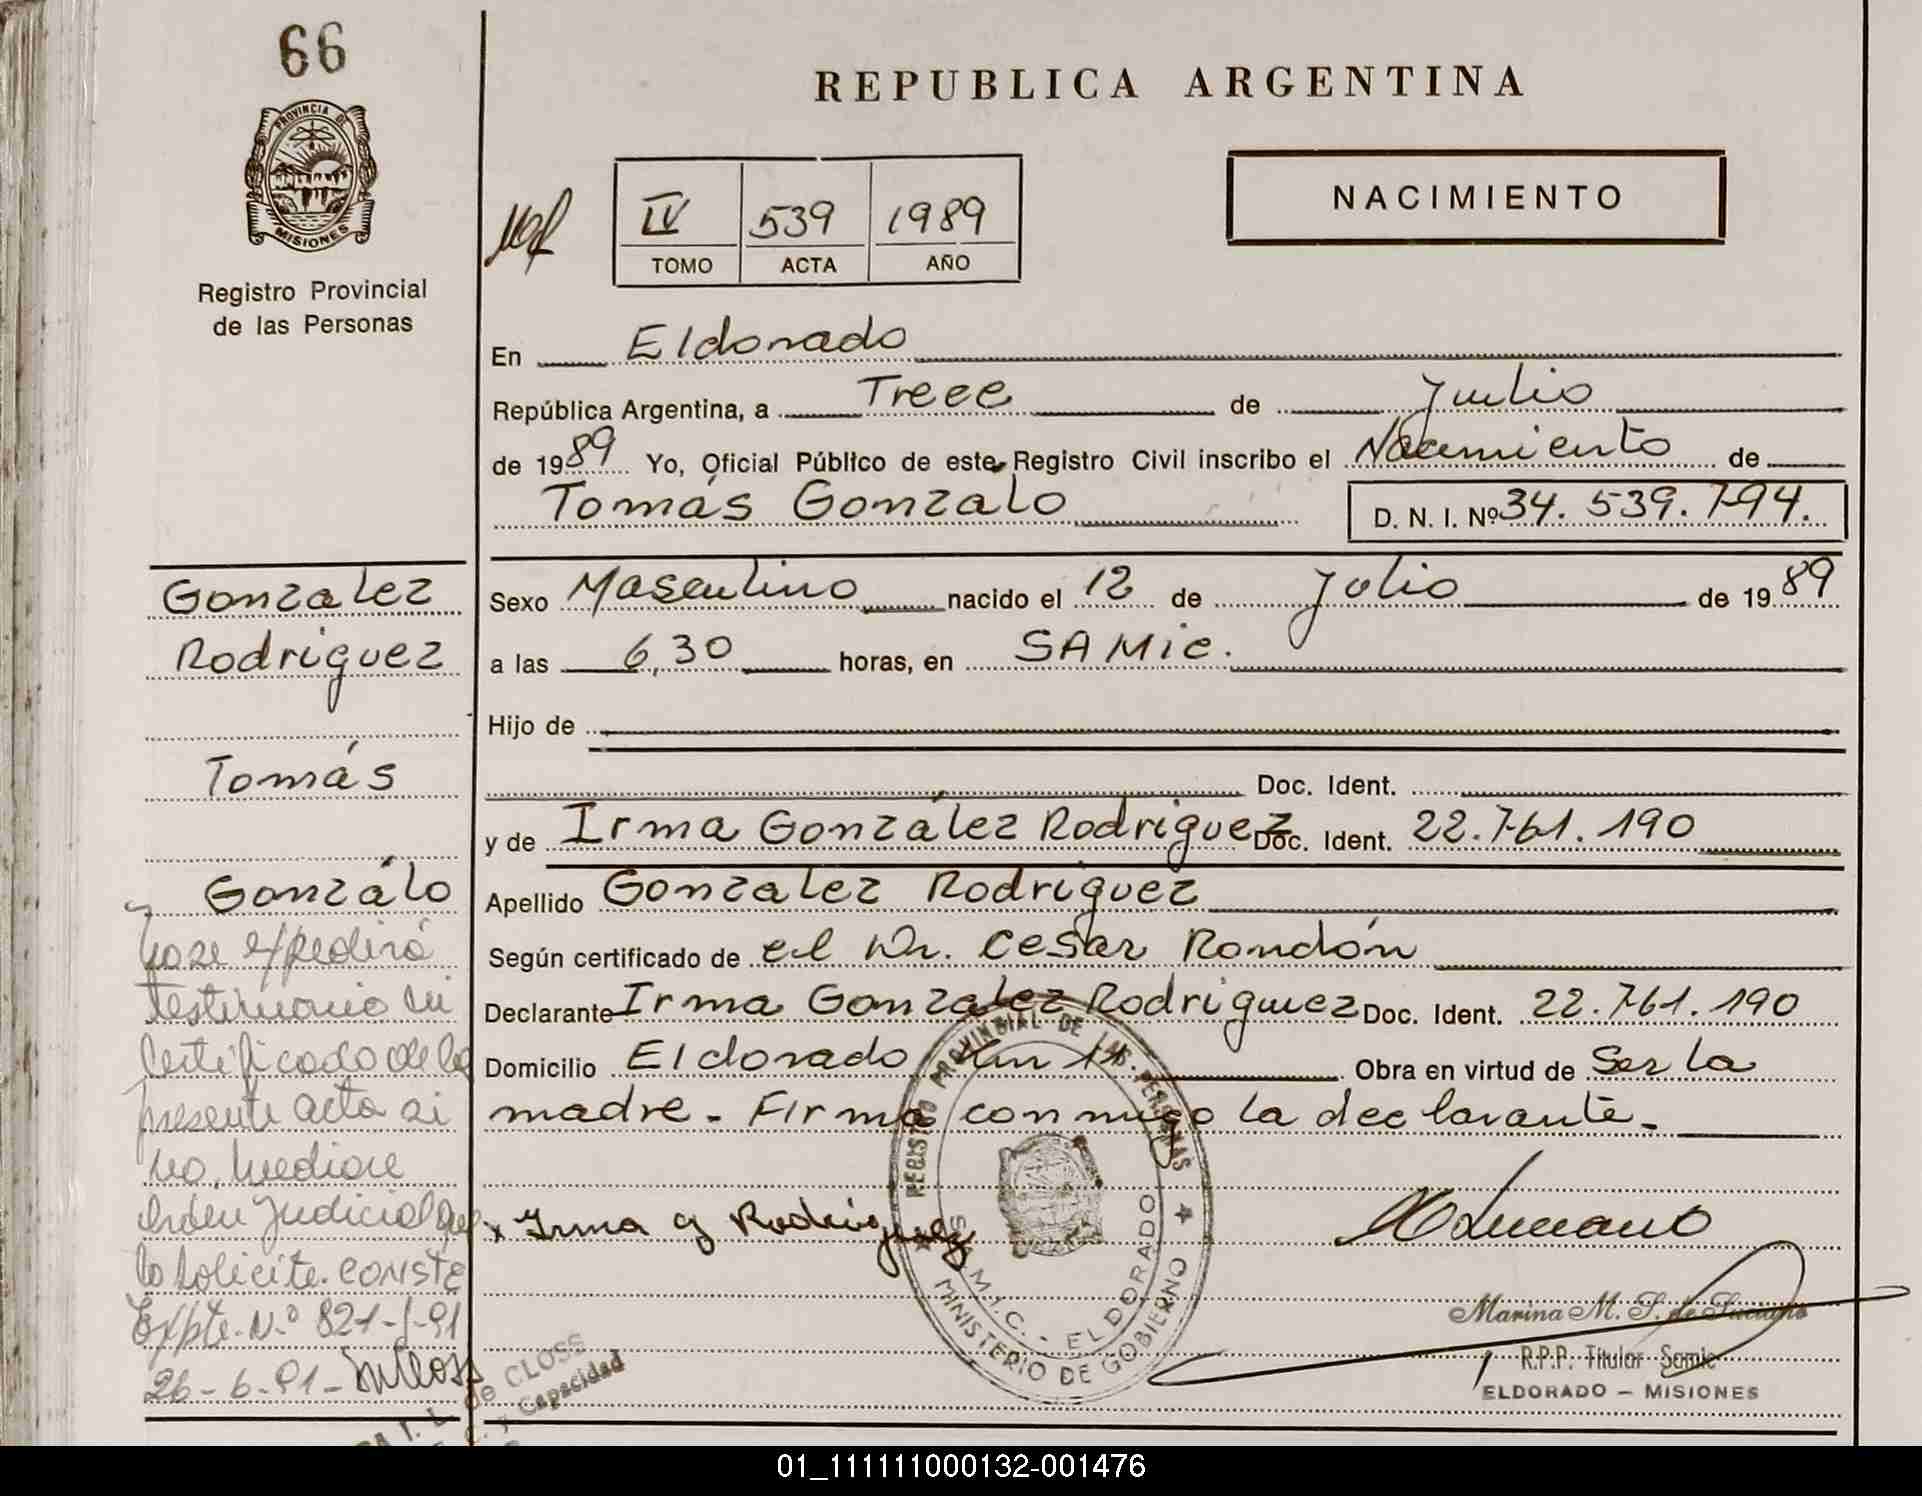 66
PROVINCIA DE
MISIONES
Registro Provincial
de las Personas
REPUBLICA ARGENTINA
NACIMIENTO
IV 539 1989
TOMO ACTA AÑO
En Eldorado
República Argentina, a Trece de Julio
de 1989 Yo, Oficial Público de este Registro Civil inscribo el Nacimiento de
Tomás Gonzalo D. N. I. Nº 34.539.794.
Gonzalez
Rodriguez
Tomás
Gonzálo
Sexo Masculino nacido el 12 de Julio de 1989
a las 6,30 horas, en SAMic.
Hijo de
Doc. Ident.
y de Irma González Rodriguez Doc. Ident. 22.761.190
Apellido Gonzalez Rodriguez
Según certificado de el Dr. Cesar Rondón
Declarante Irma Gonzalez Rodriguez Doc. Ident. 22.761.190
Domicilio Eldorado Km 11. Obra en virtud de Ser la
madre. Firma conmigo la declarante.
No se expedirá
testimonio ni
Certificado de la
presente acta si
no mediare
orden Judicial que
lo solicite. CONSTE
Expte. N.º 821-J-91
26-6-91-
x Irma G Rodríguez
REGISTRO PROVINCIAL DE LAS PERSONAS
S.A.M.I.C. - ELDORADO
MINISTERIO DE GOBIERNO
Marina M. S. de Luciano
R.P.P. Titular Samic
ELDORADO - MISIONES
de CLOSS
y Capacidad
01_111111000132-001476